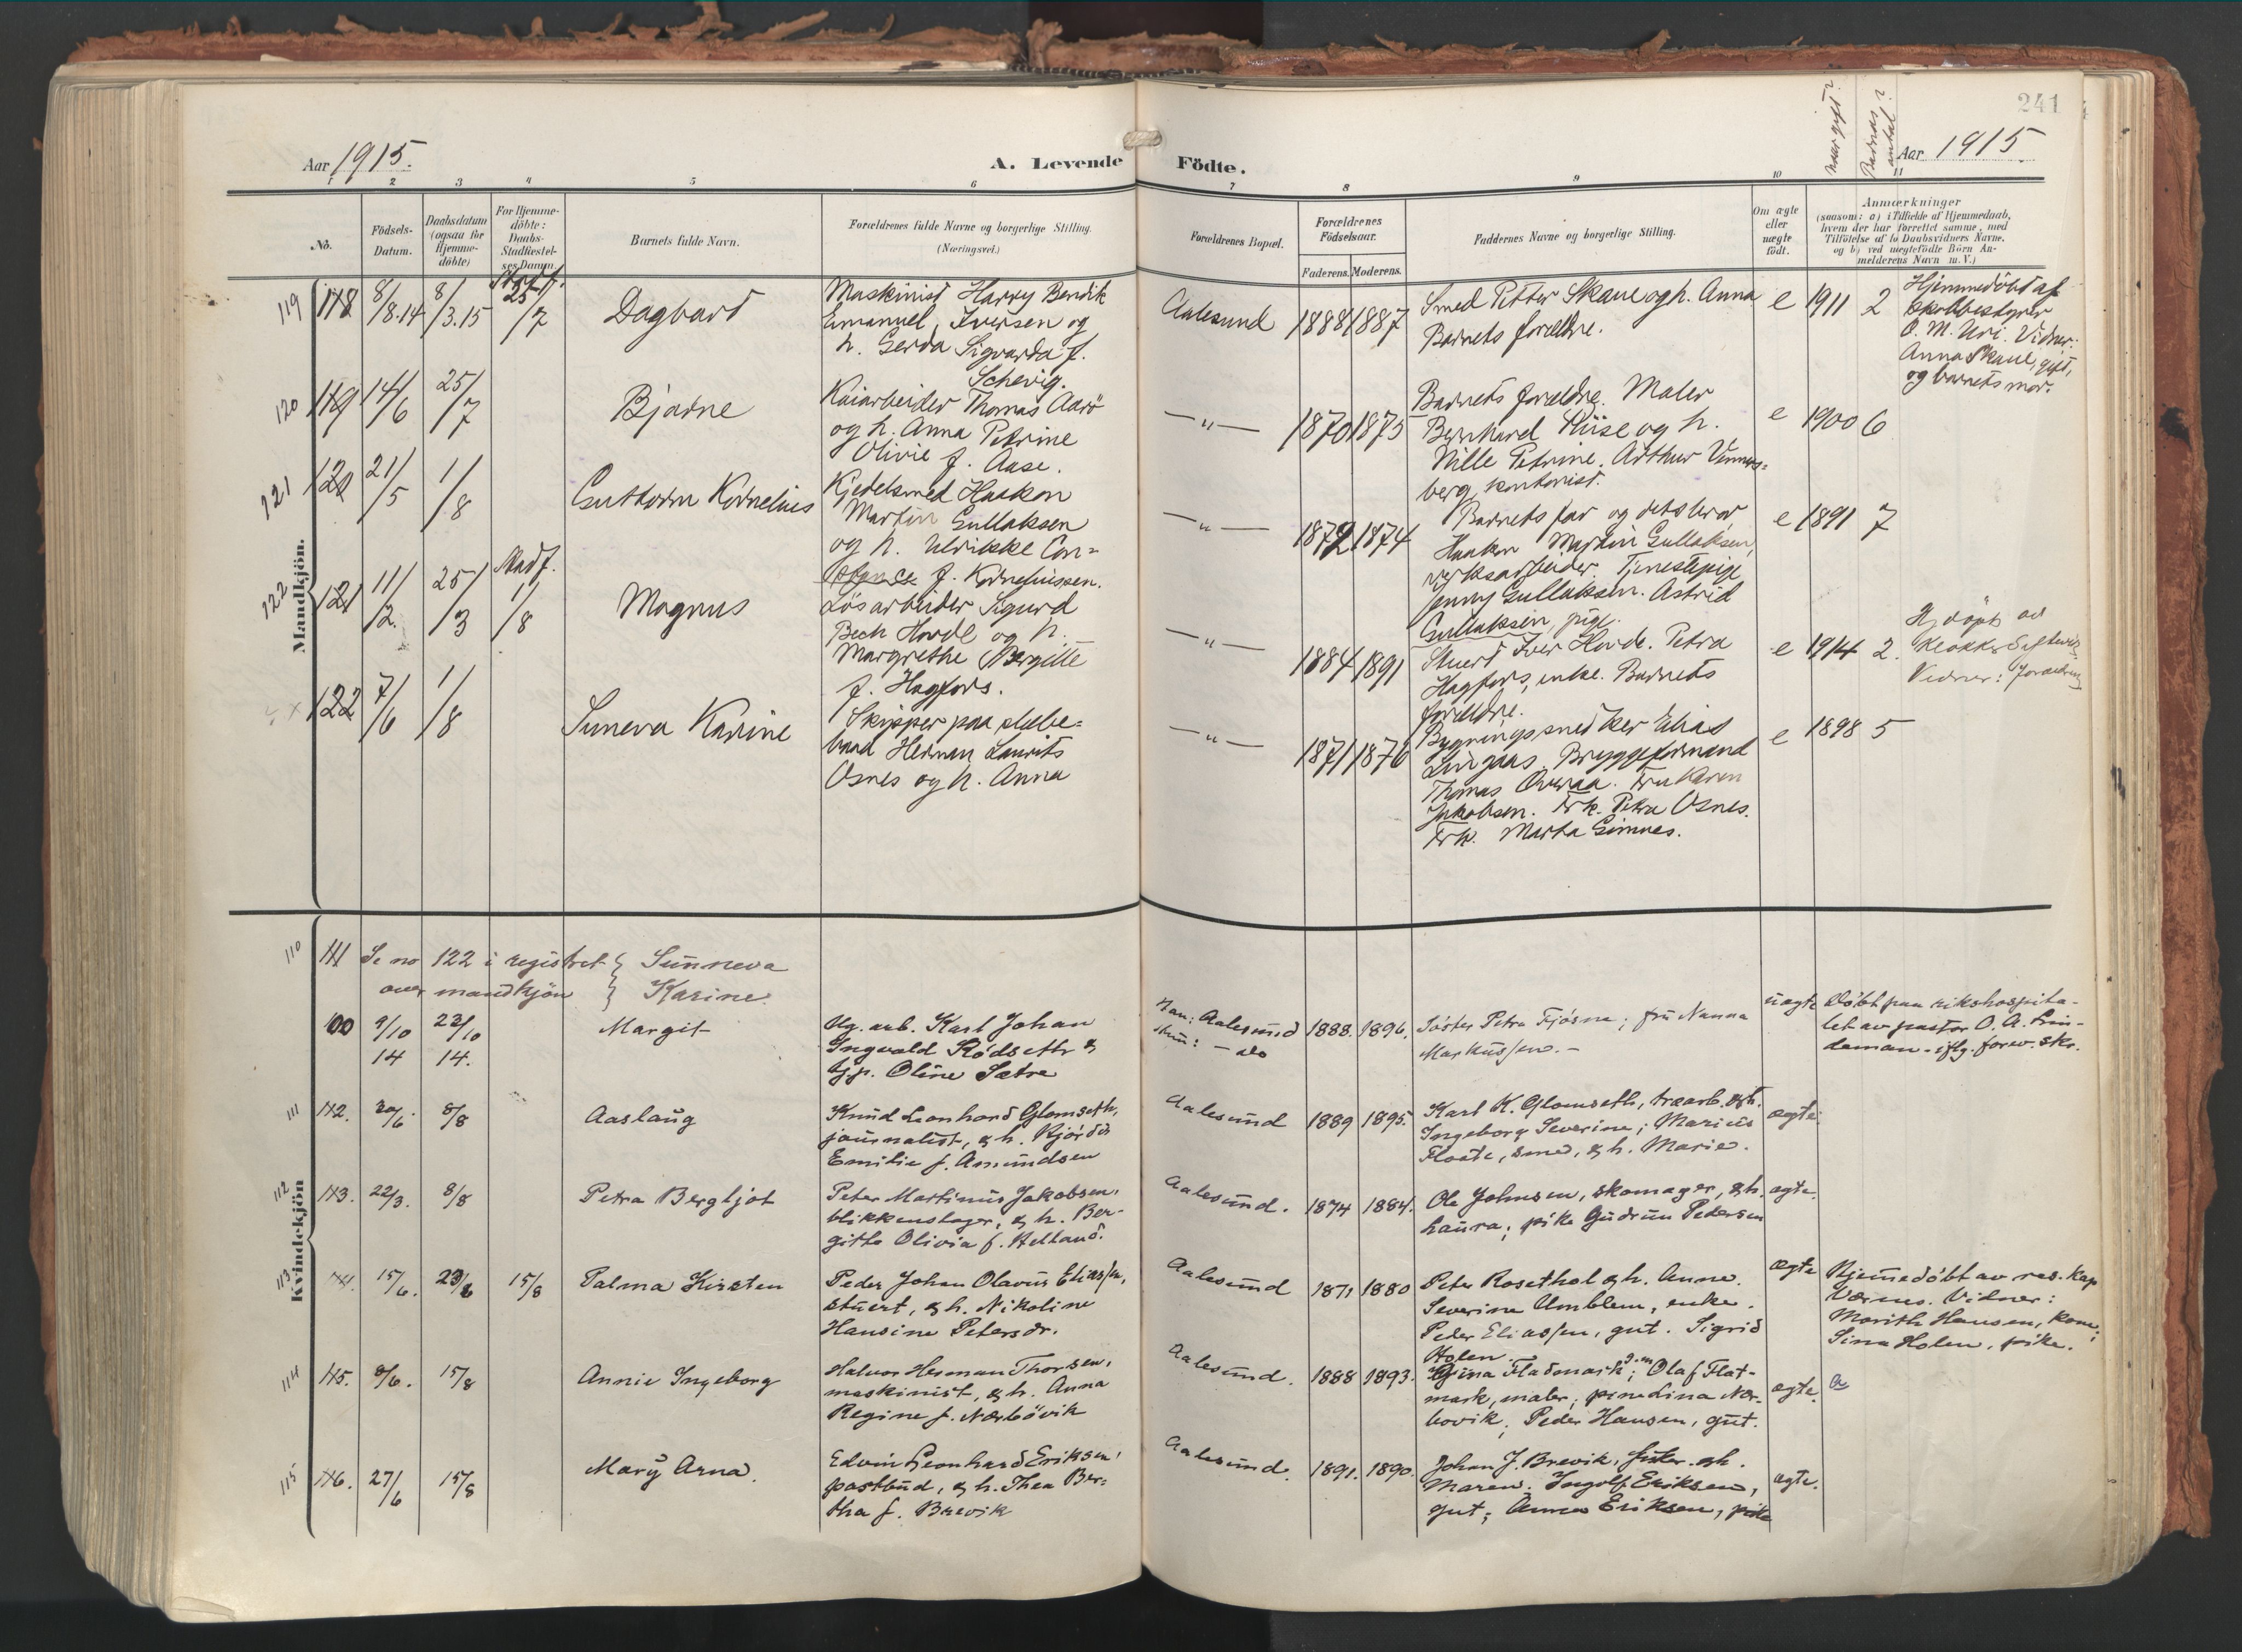 241
Aar 1915.
A. Levende
Födte.
naar gift?
Barnas antal?
Aar 1915
1 2 3 4 5 6 7 8 9 10 11
No.
Födsels-
Datum.
Daabsdatum
(ogsaa for
Hjemme-
döbte)
For Hjemme-
döbte:
Daabs-
Stadfæstel-
ses Datum.
Barnets fulde Navn.
Forældrenes fulde Navne og borgerlige Stilling.
(Næringsvei.)
Forældrenes Bopæl.
Forældrenes
Födselsaar.
Faderens. Moderens.
Faddernes Navne og borgerlige Stilling.
Om ægte
eller
uægte
födt.
Anmærkninger
(saasom: a) i Tilfælde af Hjemmedaab,
hvem der har forrettet samme, med
Tilföielse af to Daabsvidners Navne.
og b) ved uegtefödte Börn An-
melderens Navn m. V.)
Mandkjön.
119 118 8/8.14 8/3.15 Stadf. 25/7 Dagbart
Maskinist Harry Bendik
Emanuel Iversen og
h. Gerda Sigvarda f.
Schevig.
Aalesund 1888 1887
Smed Petter Skaue og h. Anna
Barnets forældre.
e 1911 2
Hjemmedöbt af
skolebestyrer
O. M. Uri. Vidner:
Anna Skaue, gift,
og barnets mor.
120 119 14/6 25/7 Bjarne
Kaiarbeider Thomas Aarö
og h. Anna Petrine
Olivie f. Aase.
—"— 1870 1875
Barnets forældre. Maler
Bernhard Riise og h.
Nille Petrine. Arthur Vinners=
berg, kontorist.
e 1900 6
121 120 21/5 1/8 Guttorm Kornelius
Kjedelsmed Haakon
Martin Gullaksen
og h. Ulrikke Con=
stance f. Korneliussen.
—"— 1872 1874
Barnets far og dets bror
Haakon Martin Gullaksen,
verksarbeider. Tjenestepige
Jenny Gullaksen. Astrid
Gullaksen, pige.
e 1891 7
122 121 11/2 25/3 Stadf. 1/8 Magnus
Lösarbeider Sigurd
Bech Hovde og h.
Margrethe Bergitte
f. Hagfors.
—"— 1884 1891
Stuert Iver Hovde. Petra
Hagfors, enke. Barnets
forældre.
e 1914 2.
Hj.döpt av
Vidner: Forældrene
122 7/6 1/8 Suneva Karine
Skipper paa slæbe=
baad Herman Laurits
Osnes og h. Anna
—"— 1871 1876
Bygningssnedker Elias
Bryggeformand
Thomas Fru Karen
Jakobsen. Frk. Petra Osnes.
Frk. Marta Gimnes.
e 1898 5
Kvindekjön
110 111 Se no 122 i registret } Sunneva
over mandkjön } Karine
100 9/10 14 23/10 14. Margit
Ug. arb. Karl Johan
Ingvald Rödseth &
tjp. Oline Sætre
Han: Aalesund
hun: — do
1888. 1896.
Söster Petra Fjösne; fru Nanna
Markussen. –
uægte
Döbt paa rikshospita-
let av pastor O. A. Lin-
deman – iflg. forev. skr.
111 112. 20/6. 8/8 Aaslaug
Knud Leonhard Glomseth,
journalist, & h. Hjördis
Emilie f. Amundsen
Aalesund 1889 1895.
Karl K. Glomseth, træarb. & h.
Ingeborg Severine; Marius
Floate, smed, & h. Marie.
ægte.
112 113. 22/3. 8/8 Petra Bergljot
Peter Martinus Jakobsen,
blikkenslager, & h. Ber-
gitte Olivia f. Helland.
Aalesund. 1874 1884.
Ole Johnsen, skomager, & h.
Laura; pike Gudrun Pedersen
ægte.
113 114. 15/6. 23/6 15/8 Palma Kirsten
Peder Johan Olavus Eliassen,
stuert, & h. Nikoline
Hansine Petersdr.
Aalesund 1871 1880
Peter Rosethol & h. Anne.
Severine Umblem, enke.
Peder Eliassen, gut. Sigrid
Holen.
ægte
Hjemmedöbt av res. kap
Værnes. Vidner:
Marith Hansen, kone;
Sina Holen, pike.
114 115. 8/6. 15/8 Annie Ingeborg
Halvor Herman Thorsen,
maskinist, & h. Anna
Regine f. Nærbövik
Aalesund. 1888 1893.
Gina Fladmark; Olaf Flat-
mark, maler; Lina Nær-
bovik; Peder Hansen, gut.
ægte.
115 116. 27/6 15/8 Mary Arna.
Edvin Leonhard Eriksen,
postbud, & h. Thea Ber-
tha f. Brevik
Aalesund. 1891. 1890.
Johan J. Brevik, fisker & h.
Maren. Ingolf Eriksen,
gut; Anna Eriksen, pike
ægte.